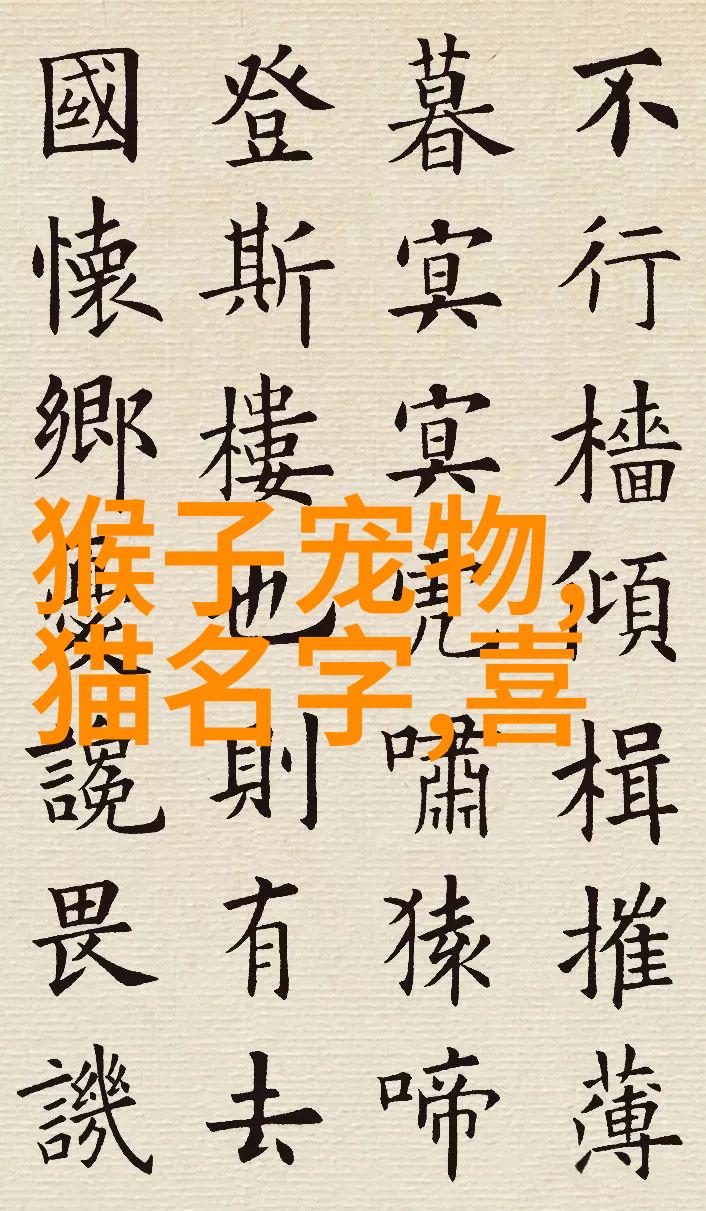 不行檣傾楫摧薄
暮冥冥虎嘯猿啼
登斯樓也則有去
國懷鄉憂讒畏譏
猴子宠物,
猫名字,喜